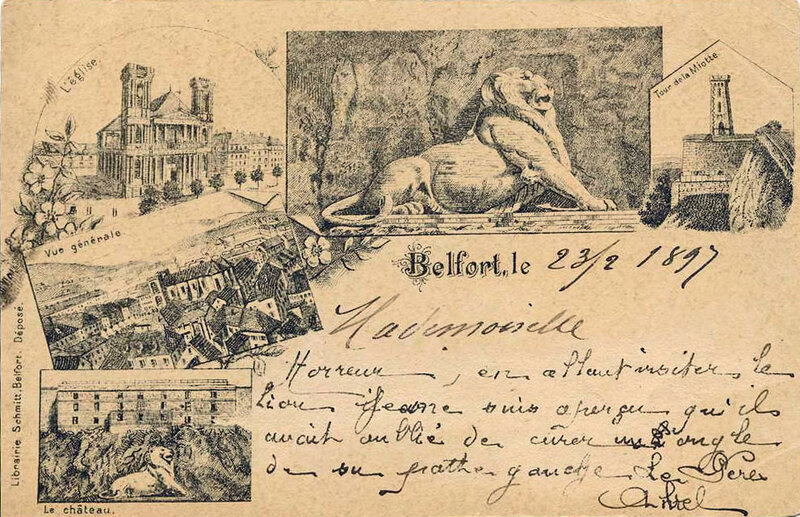 L'église
Tour de la Miotte
Vue générale
Belfort, le 23/2 1897
Mademoiselle
Horreur, en allant visiter le
Lion je me suis aperçu qu'il
avait oublié de curer un ongle
de sa patte gauche Le Père
Librairie Schmitt, Belfort. Déposé.
Le château.